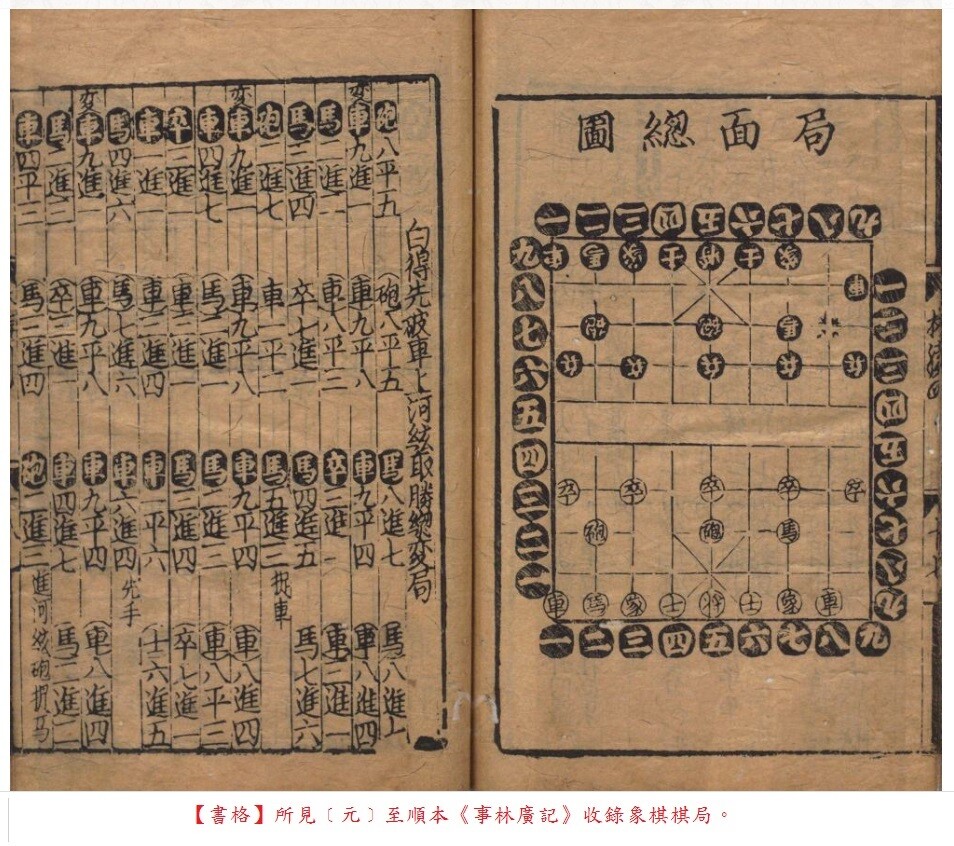 局面緫圖
一二三四五六七八九
九八七六五四三二一
一二三四五六七八九
車馬象士將士象
車
砲砲馬
卒卒卒卒卒
砲砲馬
車馬象士將士象車
一二三四五六七八九
白得先破車上河絃取勝緫变局
砲八平五 砲八平五 馬八進七 馬八進七
变車九進一 車九平八 車九平四 車八進四
馬二進一 車八平二 卒三進一 車二進一
馬二進四 卒七進一 馬四進五 馬七進六
砲二進七 車一平二 馬五進三 捉車
变車九進一 車九平八 車九平四 車八進四
車四進七 馬二進一 馬二進三 車八平三
卒三進一 車二進一 馬三進四 卒七進一
車一進一 車二進四 車一平六 士六進五
馬四進六 馬七進六 車六進四 先手
变車九進一 車九平八 車九平四 車八進四
馬二進三 卒三進一 車四進七 馬二進一
車四平二 馬三進四 砲二進三 進河絃砲捉馬
【書格】所見﹝元﹞至順本《事林廣記》收錄象棋棋局。